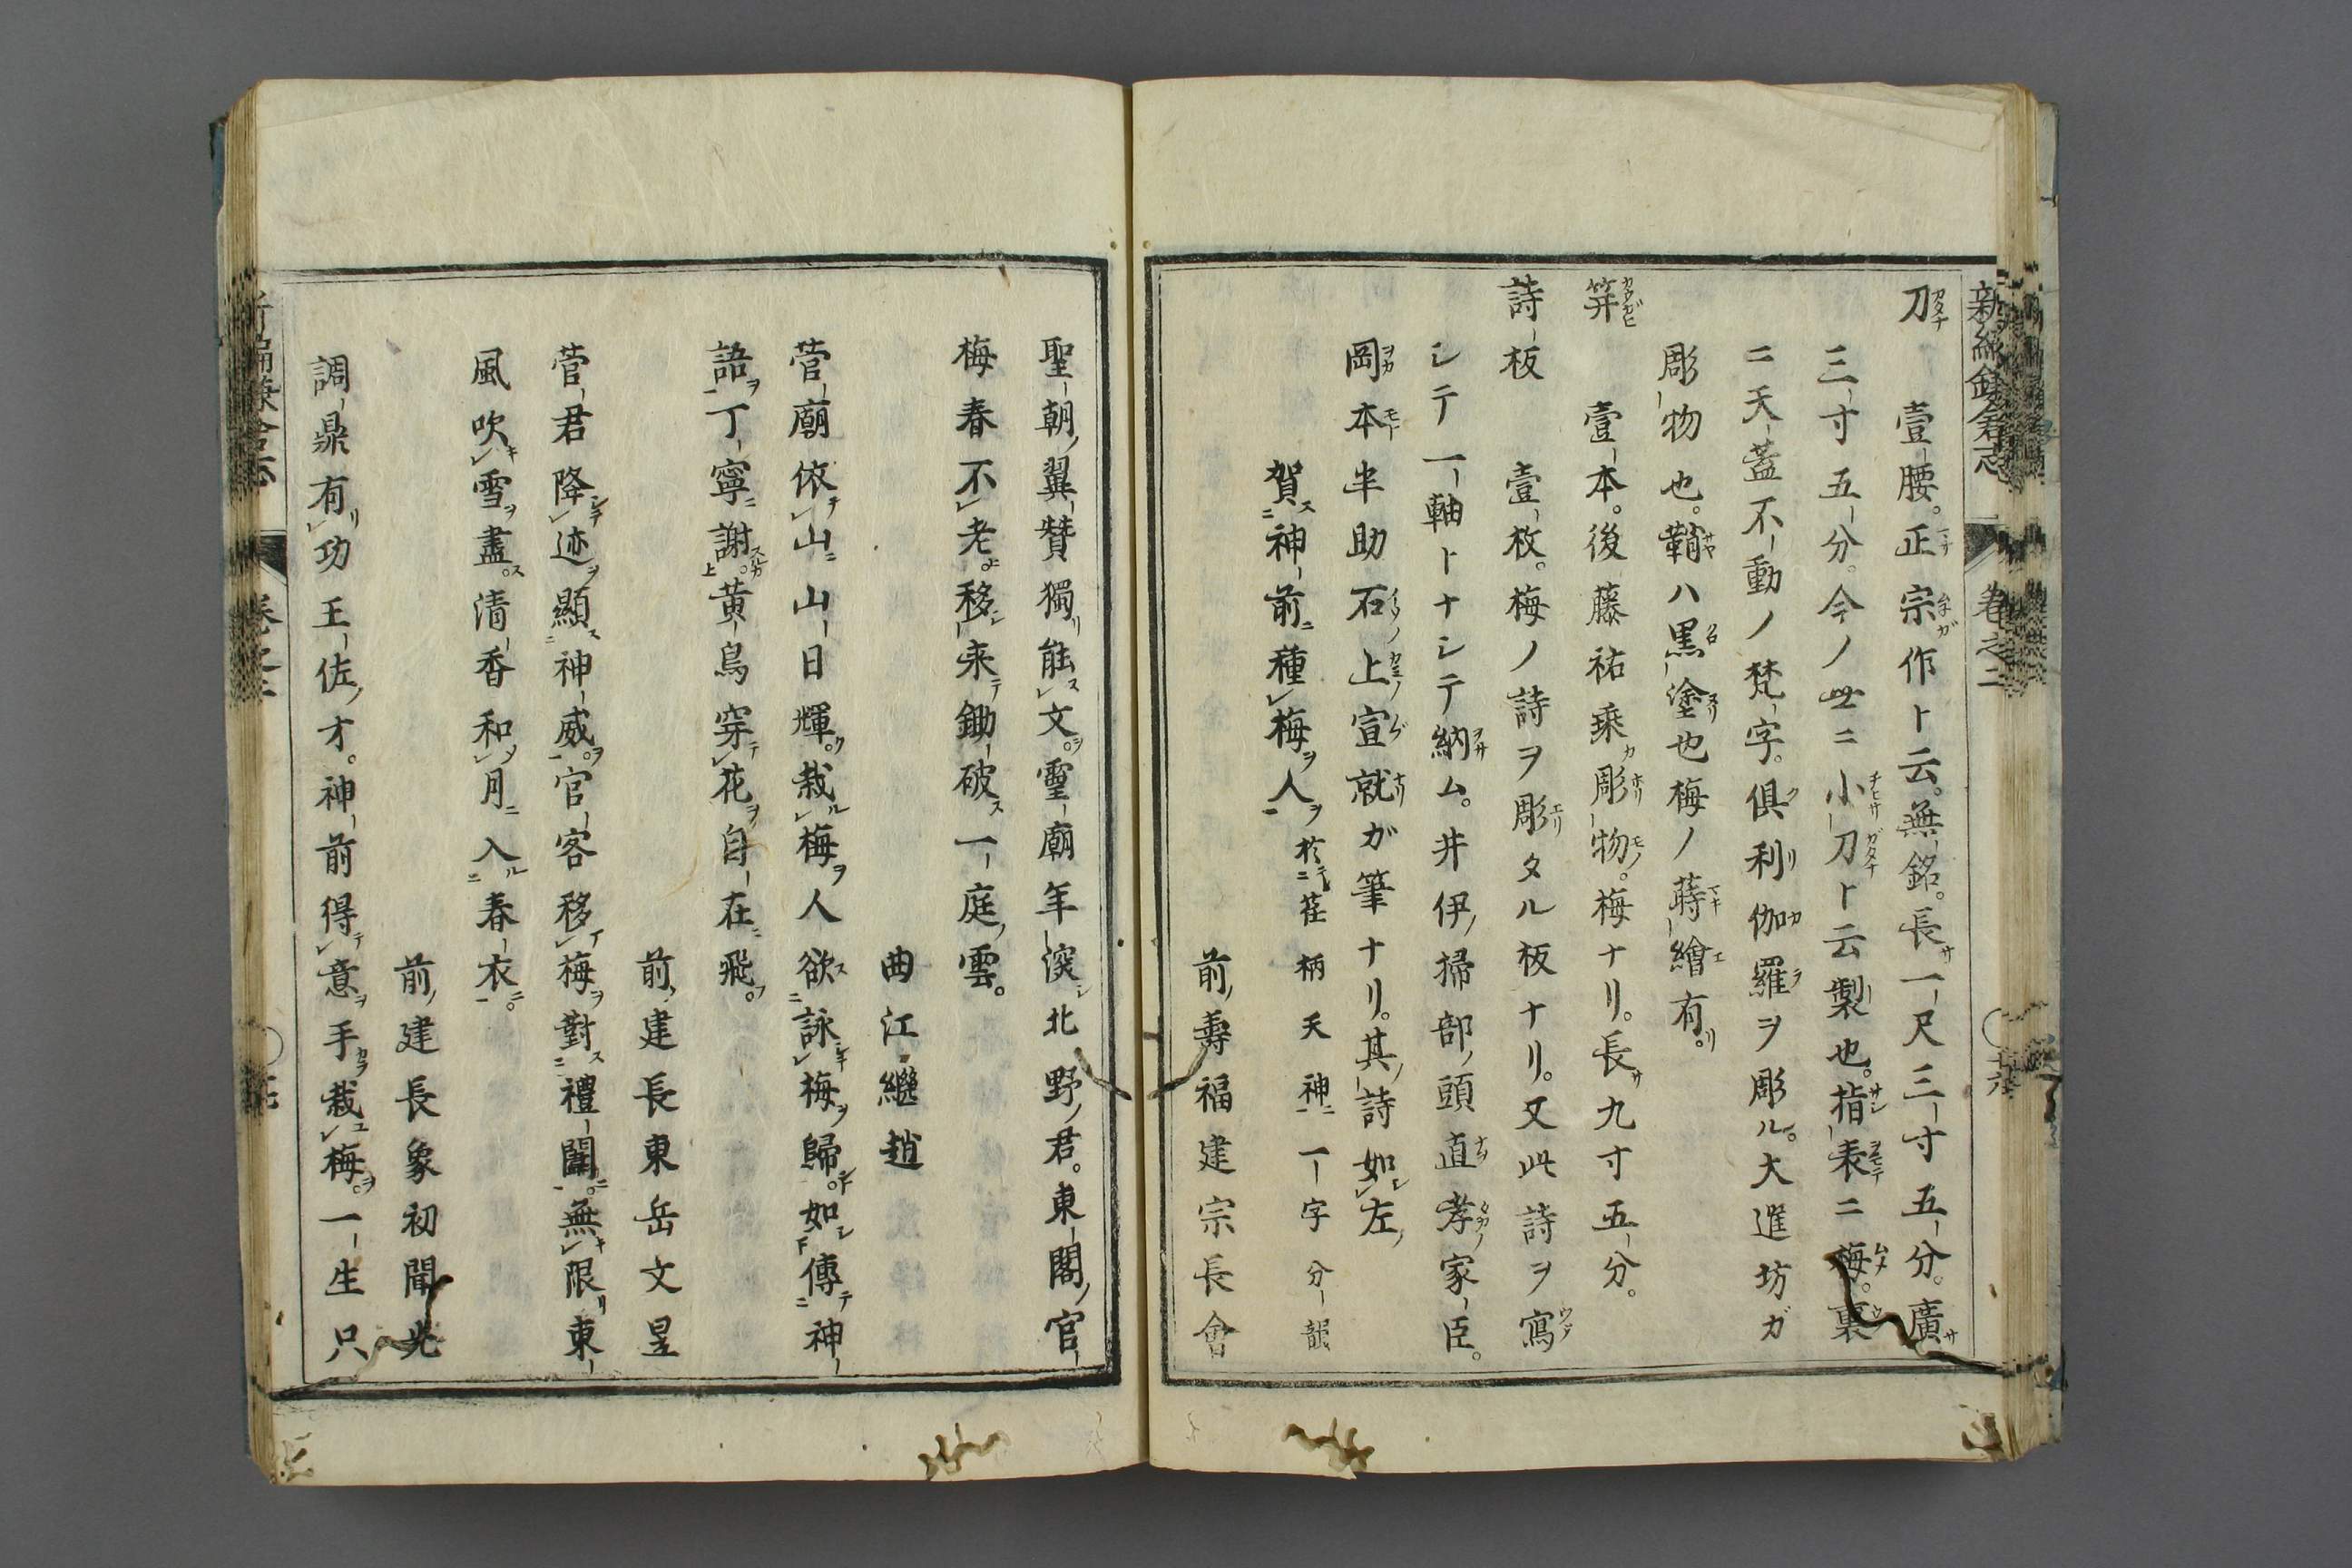 新編鎌倉志 卷之二
刀 壹腰。正宗作ト云。無銘。長一尺三寸五分。廣
三寸五分。今ノ世ニ小刀ト云製也。指表ニ梅。裏
ニ天蓋不動ノ梵字。倶利伽羅ヲ彫ル。大進坊ガ
彫物也。鞘ハ黒塗也梅ノ蒔繪有。
笄 壹本。後藤祐乗彫物。梅ナリ。長九寸五分。
詩板 壹枚。梅ノ詩ヲ彫タル板ナリ。又此詩ヲ寫
シテ一軸トナシテ納ム。井伊掃部頭直孝家臣。
岡本半助石上宣就ガ筆ナリ。其詩如左
賀神前種梅人 於荏柄天神一字分韻
前壽福建宗長會
聖朝翼賛獨能文。靈廟年深北野君。東閣官
梅春不老。移来鋤破一庭雲。
曲江繼趙
菅廟依山山日輝。栽梅人欲詠梅歸。如傳神
語丁寧謝。黄鳥穿花自在飛。
前建長東岳文昱
菅君降迹顯神威。官客移梅對禮闈。無限東
風吹雪盡。清香和月入春衣。
前建長象初聞光
調鼎有功王佐才。神前得意手栽梅。一生只